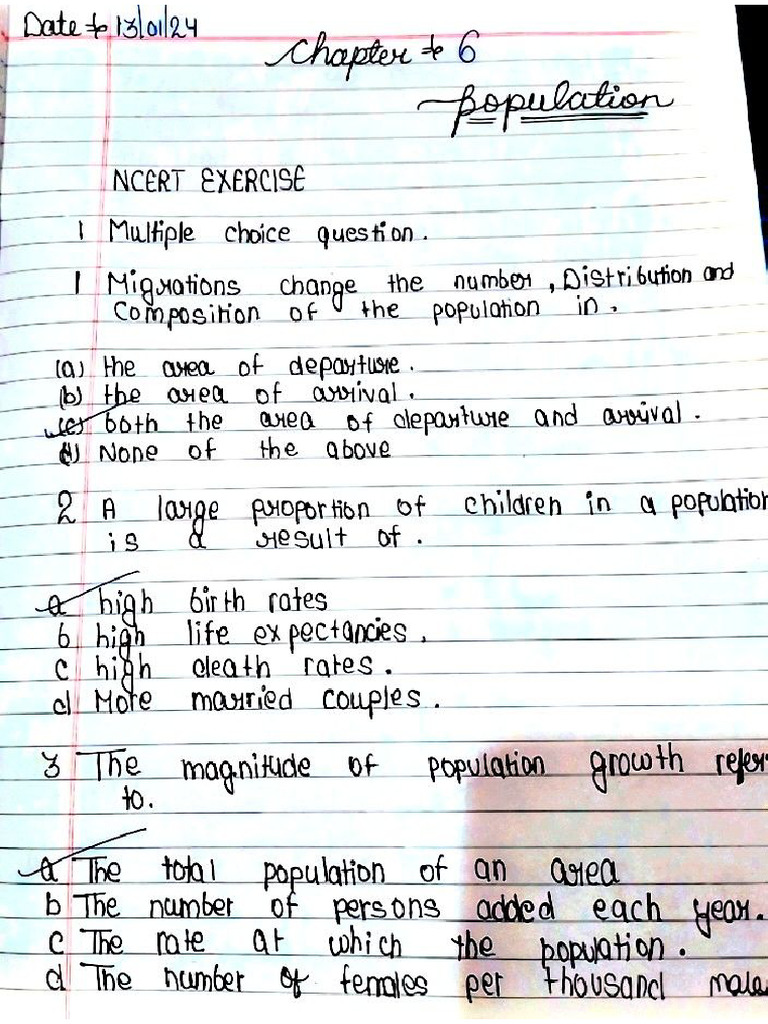 Date :- 13/01/24
Chapter :- 6
Population
NCERT EXERCISE
1 Multiple choice question.
1 Migrations change the number, Distribution and
Composition of the population in.
(a) the area of departure.
(b) the area of arrival.
(c) both the area of departure and arrival.
(d) None of the above
2 A large proportion of children in a population
is a result of.
a high birth rates
b high life expectancies.
c high death rates.
d More married couples.
3 The magnitude of population growth refer
to.
a The total population of an area
b The number of persons added each year.
c The rate at which the population.
d The number of females per thousand male